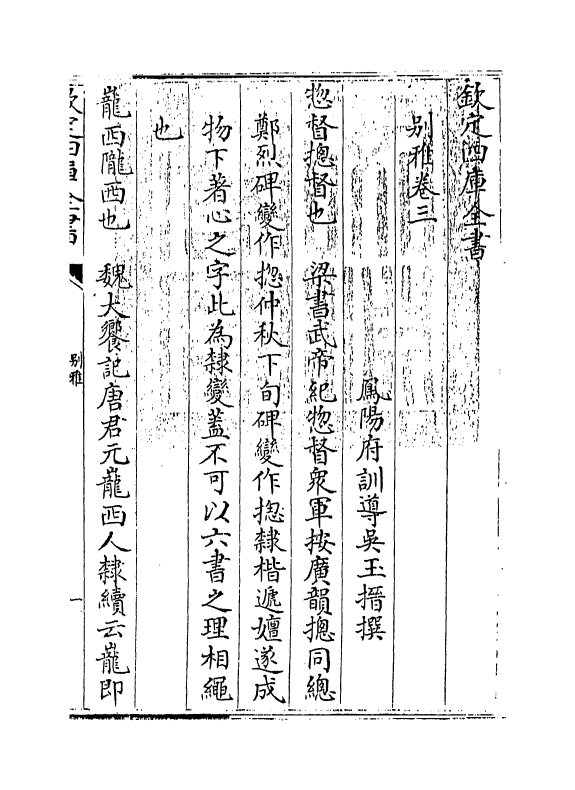 欽定四庫全書
别雅卷三
鳳陽府訓導吳玉搢撰
惣督摠督也　梁書武帝紀惣督衆軍按廣韻摠同總
鄭烈碑變作揔仲秋下旬碑變作揔隸楷遞嬗遂成
物下著心之字此為隸變蓋不可以六書之理相繩
也
龍西隴西也　魏大饗記唐君元龍西人隸續云龍即
欽定四庫全書
别雅
一